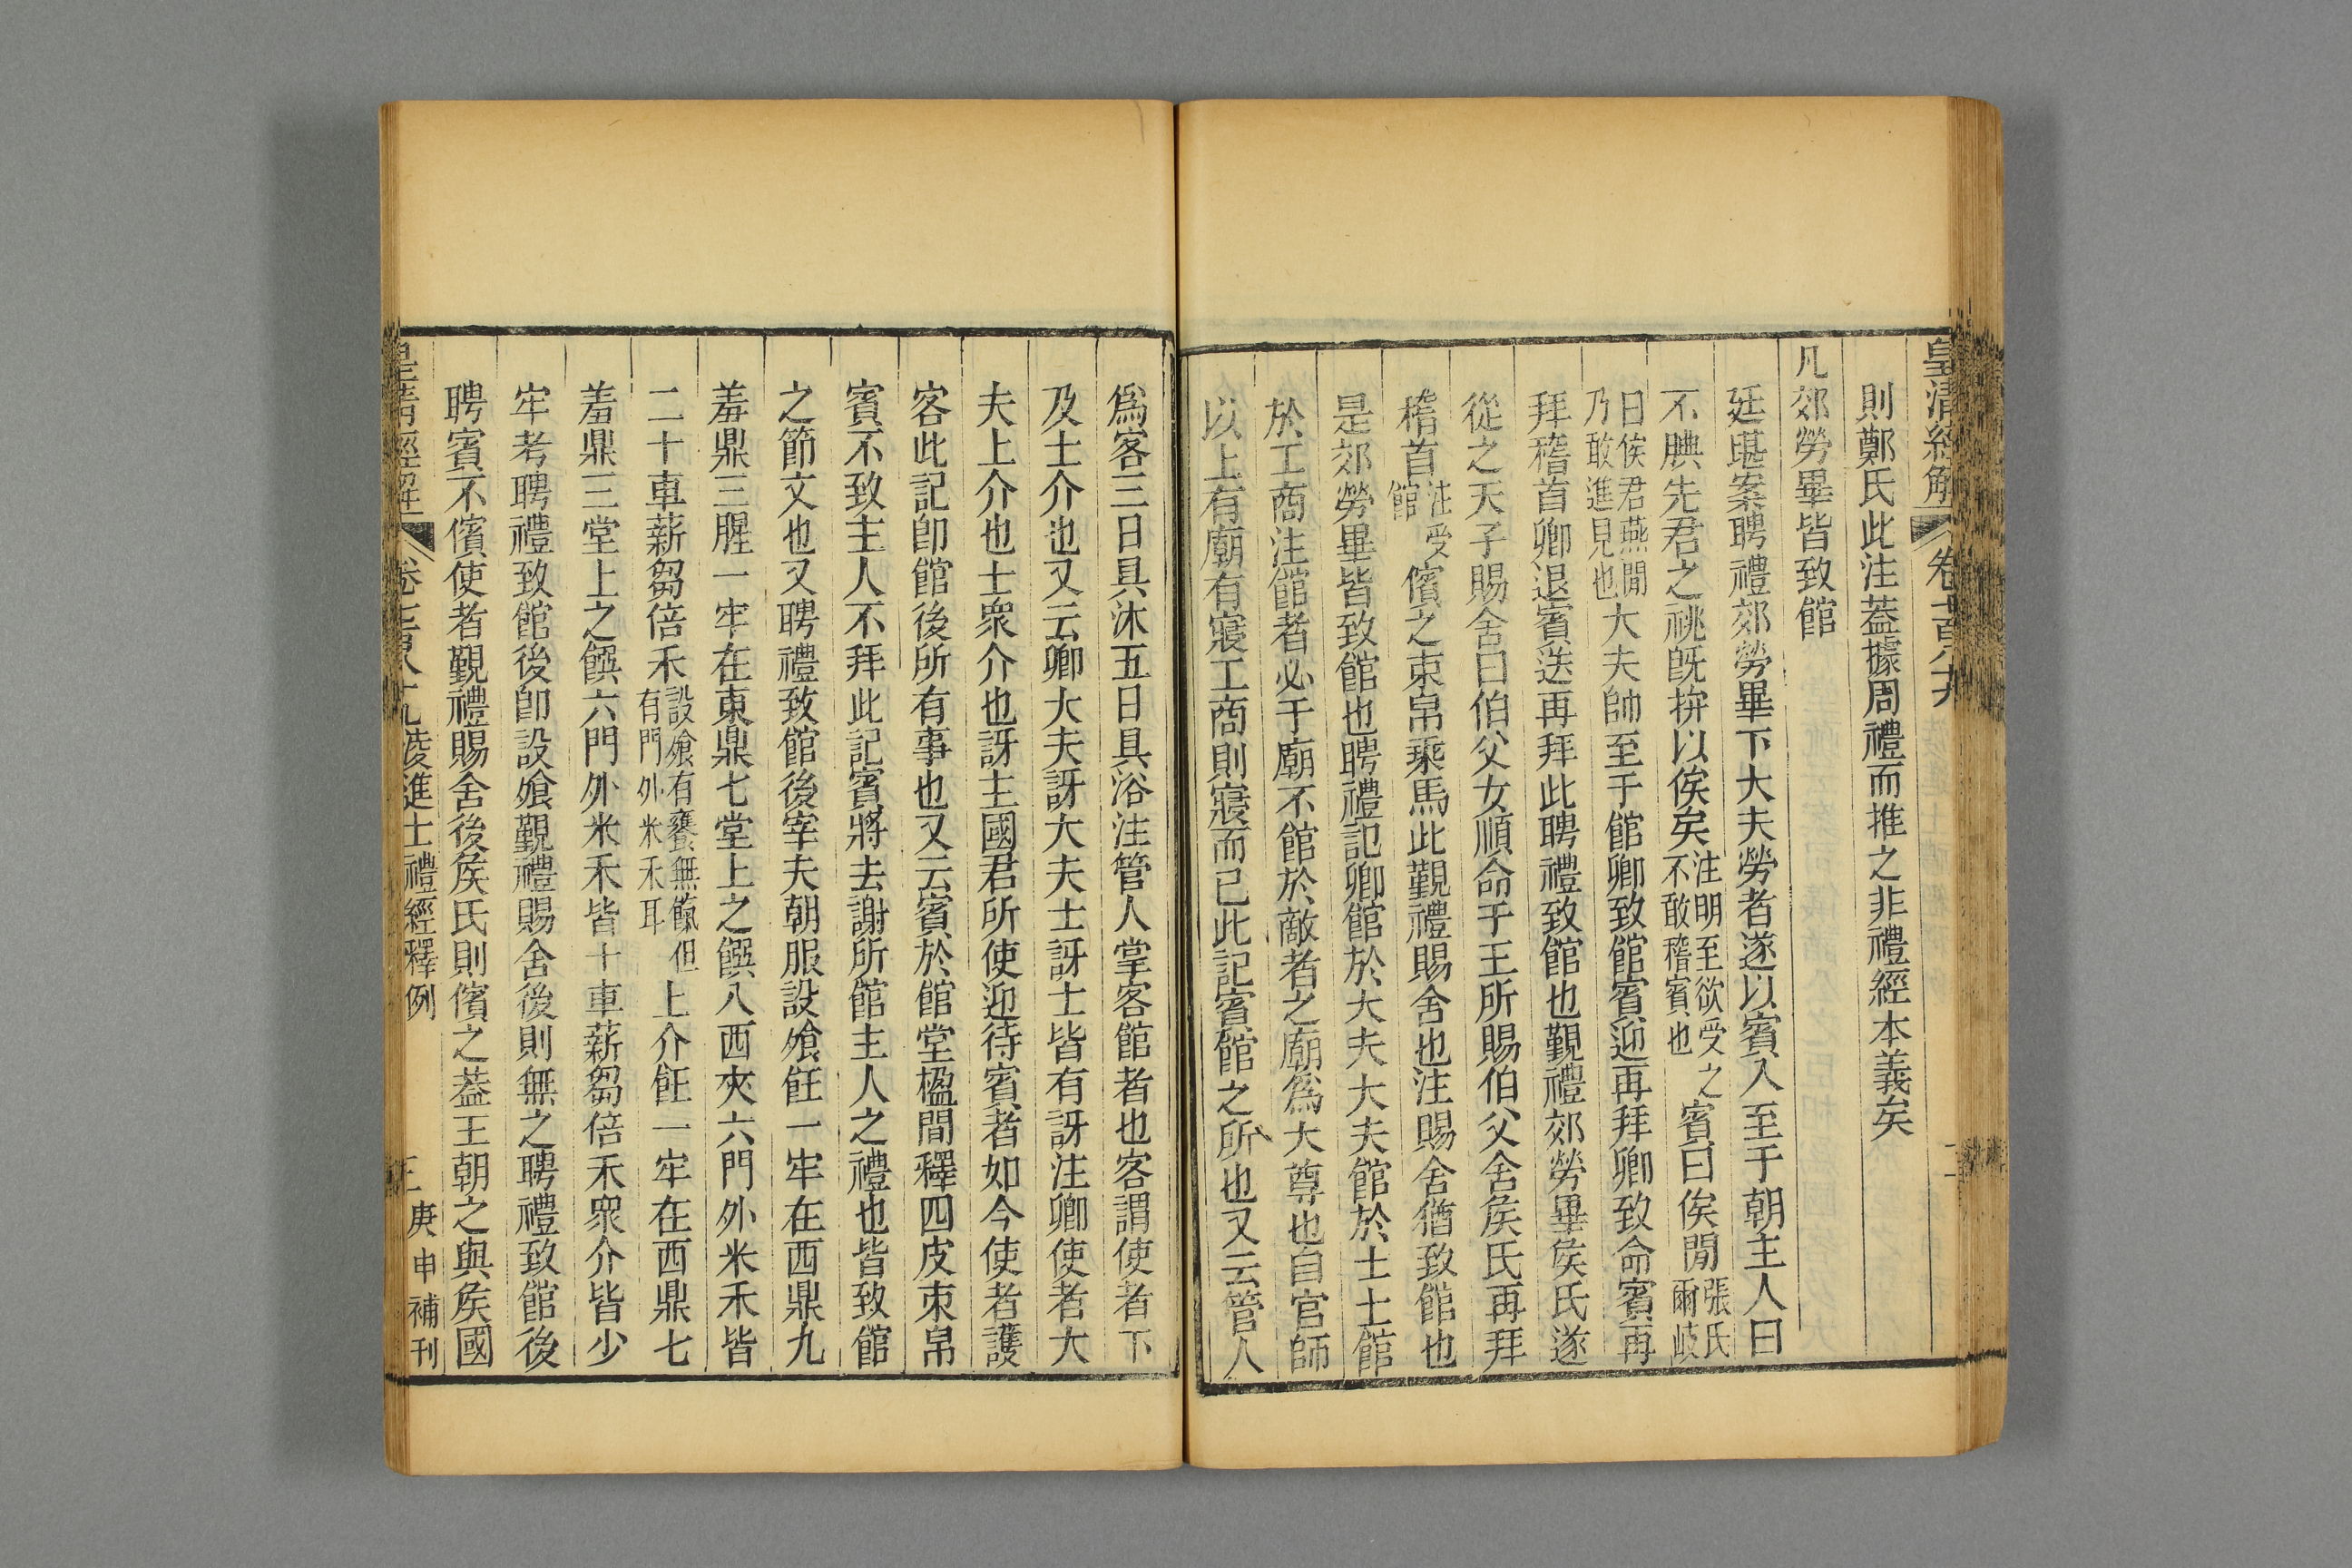 皇清經解
則鄭氏此注葢據周禮而推之非禮經本義矣
凡郊勞畢皆致館
廷堪案聘禮郊勞畢下大夫勞者遂以賓入至于朝主人曰
不腆先君之祧旣拚以俟矣注明至欲受之不敢稽賓也賓曰俟閒張氏爾岐
曰俟君燕閒乃敢進見也大夫帥至于館卿致館賓迎再拜卿致命賓再
拜稽首卿退賓送再拜此聘禮致館也覲禮郊勞畢侯氏遂
從之天子賜舍曰伯父女順命于王所賜伯父舍侯氏再拜
稽首注受館儐之束帛乘馬此覲禮賜舍也注賜舍猶致館也
是郊勞畢皆致館也聘禮記卿館於大夫大夫館於士士館
於工商注館者必于廟不館於敵者之廟爲大尊也自官師
以上有廟有寢工商則寢而已此記賓館之所也又云管人
爲客三日具沐五日具浴注管人掌客館者也客謂使者下
及士介也又云卿大夫訝大夫士訝士皆有訝注卿使者大
夫上介也士衆介也訝主國君所使迎待賓者如今使者護
客此記卽館後所有事也又云賓於館堂楹間釋四皮束帛
賓不致主人不拜此記賓將去謝所館主人之禮也皆致館
之節文也又聘禮致館後宰夫朝服設飧飪一牢在西鼎九
羞鼎三腥一牢在東鼎七堂上之饌八西夾六門外米禾皆
二十車薪芻倍禾設飧有饔無餼但有門外米禾耳上介飪一牢在西鼎七
羞鼎三堂上之饌六門外米禾皆十車薪芻倍禾衆介皆少
牢考聘禮致館後卽設飧覲禮賜舍後則無之聘禮致館後
聘賓不儐使者覲禮賜舍後侯氏則儐之葢王朝之與侯國
皇清經解 卷七百八十九 凌進士禮經釋例 三 庚申補刊